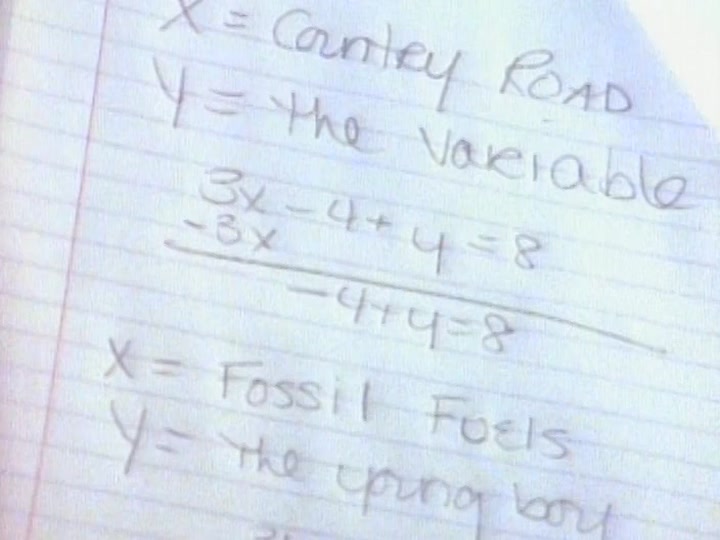 X = Countey ROAD
Y = the Vareiable
3x - 4 + y = 8
-3x
-4 + y = 8
X = Fossil Fuels
Y = the young boy